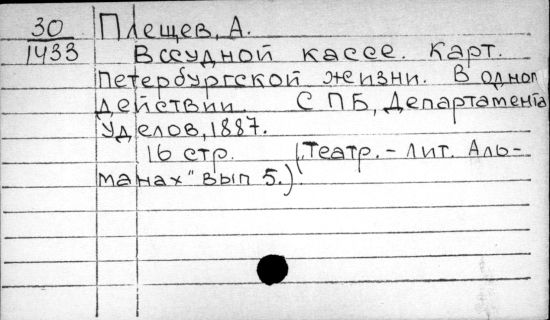 30 Плещев, А.
1433 В ссудной кассе. Карт.
Петербургской жизни. В одном
действии. СПБ, Департамента
Уделов, 1887.
16 стр. („Театр.-Лит. Аль-
манах" вып 5.)